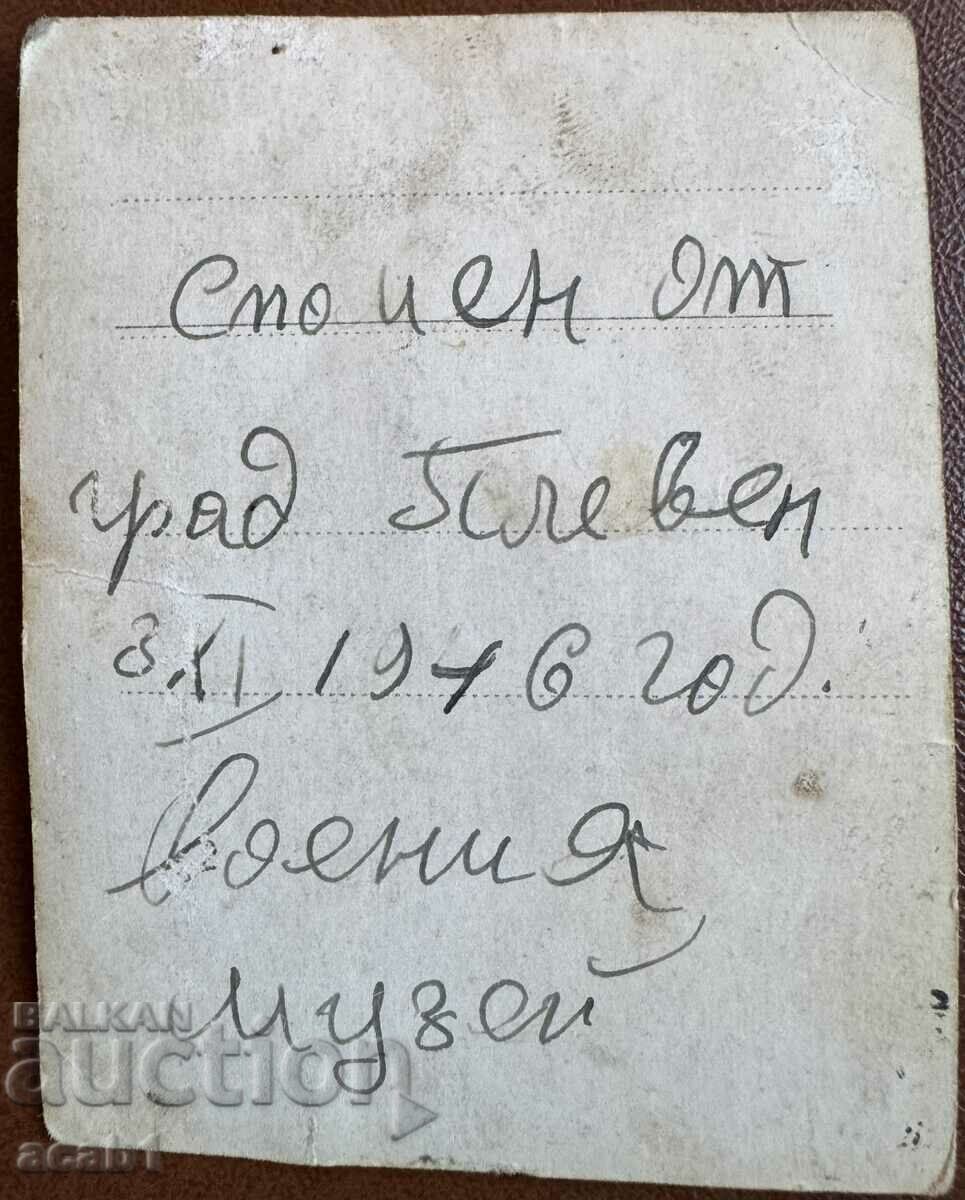 Спомен от
град Плевен
3.XI 1946 год.
военния
музей
BALKAN
auction
acab1